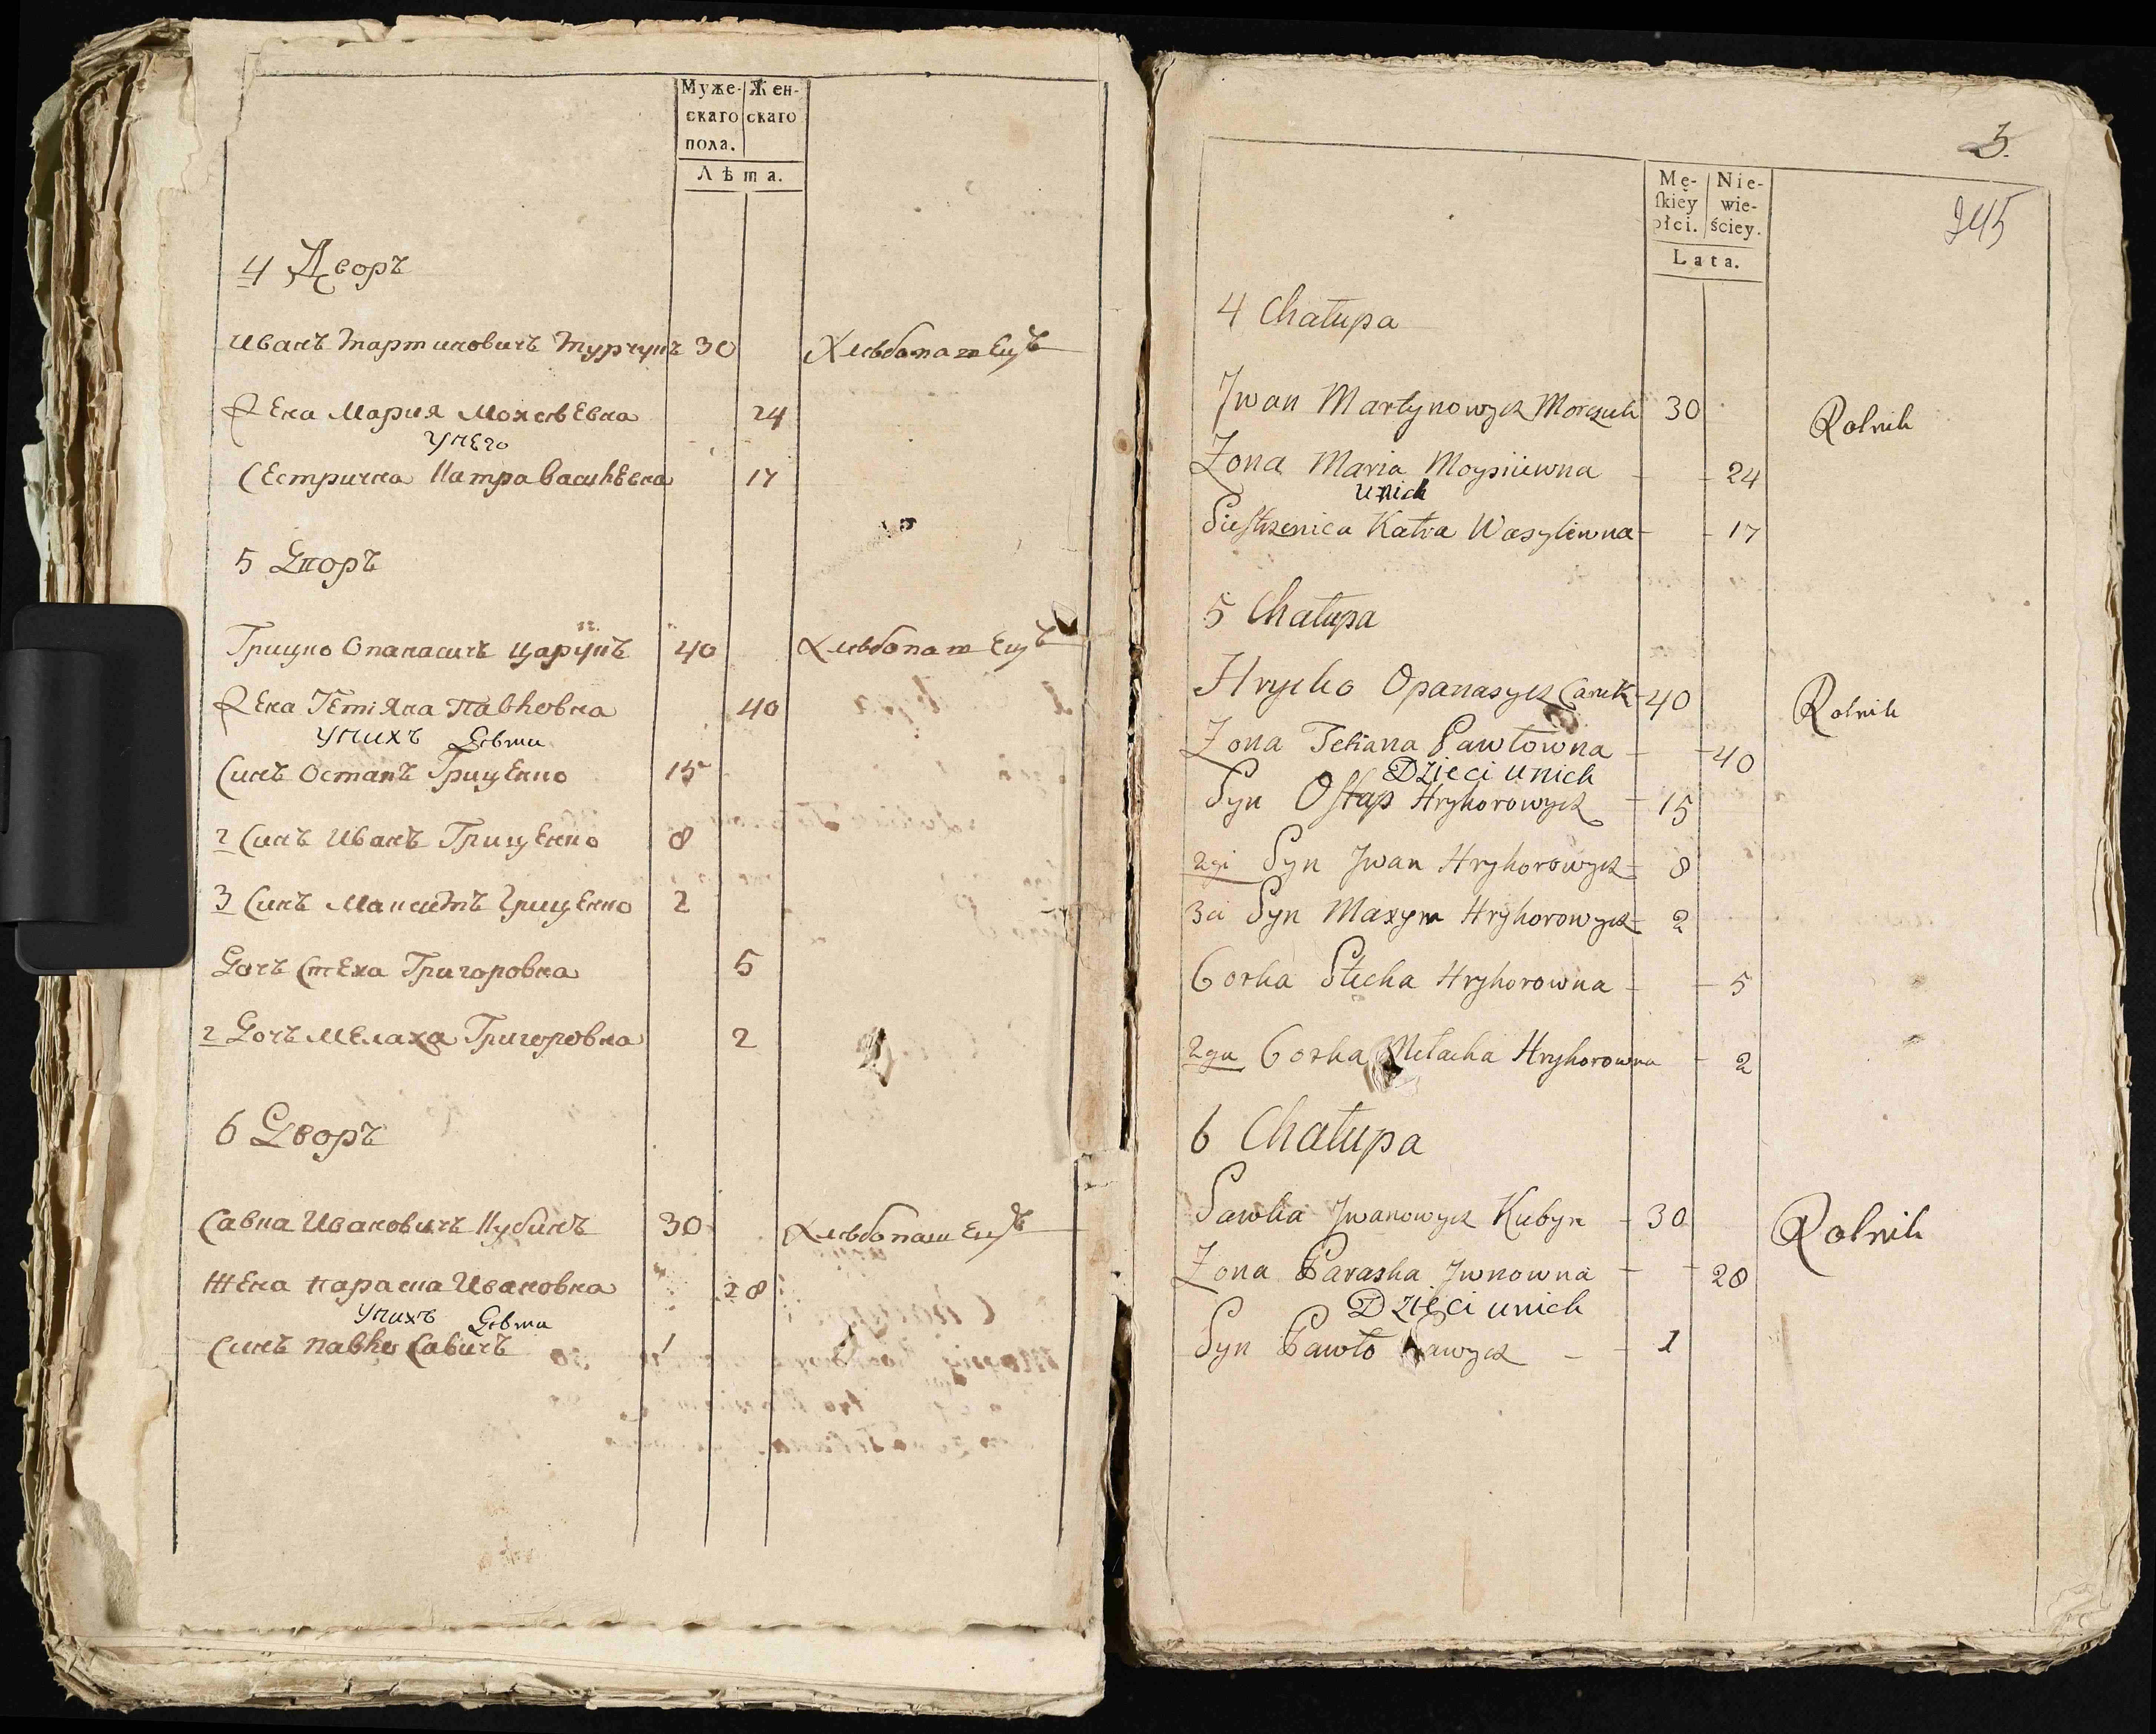 Муже-
скаго
пола.
Жен-
скаго
Лѣта.
4 Дворъ
Иванъ Мартиновичъ Мурчукъ 30 Хлѣбопашецъ
Жена Мария Мойсѣевна 24
Унего
Сестрична Катра Васильевна 17
5 Дворъ
Грицко Опанасичъ Царукъ 40 Хлѣбопашецъ
Жена Тетiяна Павловна 40
Унихъ Дѣти
Синъ Остапъ Гриценко 15
2 Синъ Иванъ Гриценко 8
3 Синъ Максимъ Гриценко 2
Дочъ Стеха Григоровна 5
2 Дочъ Мелаха Григоровна 2
6 Дворъ
Савка Ивановичъ Кубинъ 30 Хлѣбопашецъ
Жена Параска Ивановна 28
Унихъ Дѣти
Синъ Павло Савичъ 1
3.
245
Mę-
ſkiey
płci.
Nie-
wie-
ściey.
Lata.
4 Chałupa
Jwan Martynowycz Morczuk 30 Rolnik
Zona Maria Moysiiewna 24
Unich
Siestrzenica Katra Wasylewna 17
5 Chałupa
Hrycko Opanasycz Caruk 40 Rolnik
Zona Tetiana Pawłowna 40
Dzieci unich
Syn Ostap Hryhorowycz 15
2gi Syn Jwan Hryhorowycz 8
3ci Syn Maxym Hryhorowycz 2
Corka Stecha Hryhorowna 5
2ga Corka Mełacha Hryhorowna 2
6 Chałupa
Sawka Jwanowycz Kubyn 30 Rolnik
Zona Paraska Jwnowna 28
Dzieci unich
Syn Pawło Sawycz 1